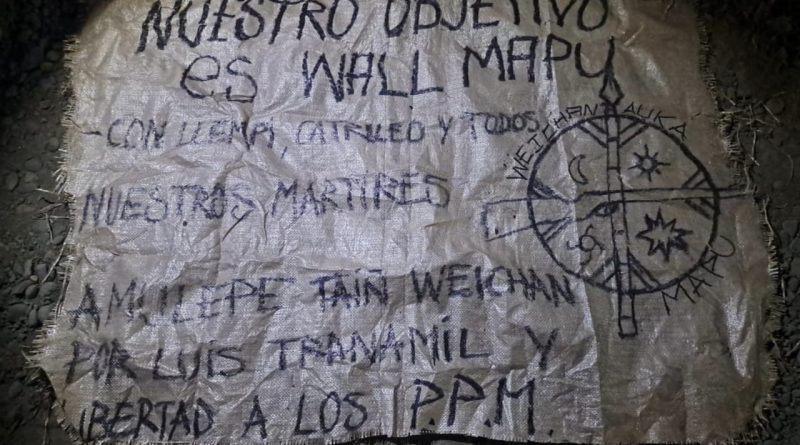 NUESTRO OBJETIVO
es WALL MAPU
-CON LLEMPI, CATRILEO Y TODOS
NUESTROS MARTIRES
AMULEPE TAIÑ WEICHAN
POR LUIS TRANAMIL Y
LIBERTAD A LOS P.P.M.
WEICHAN AUKA
MAPU